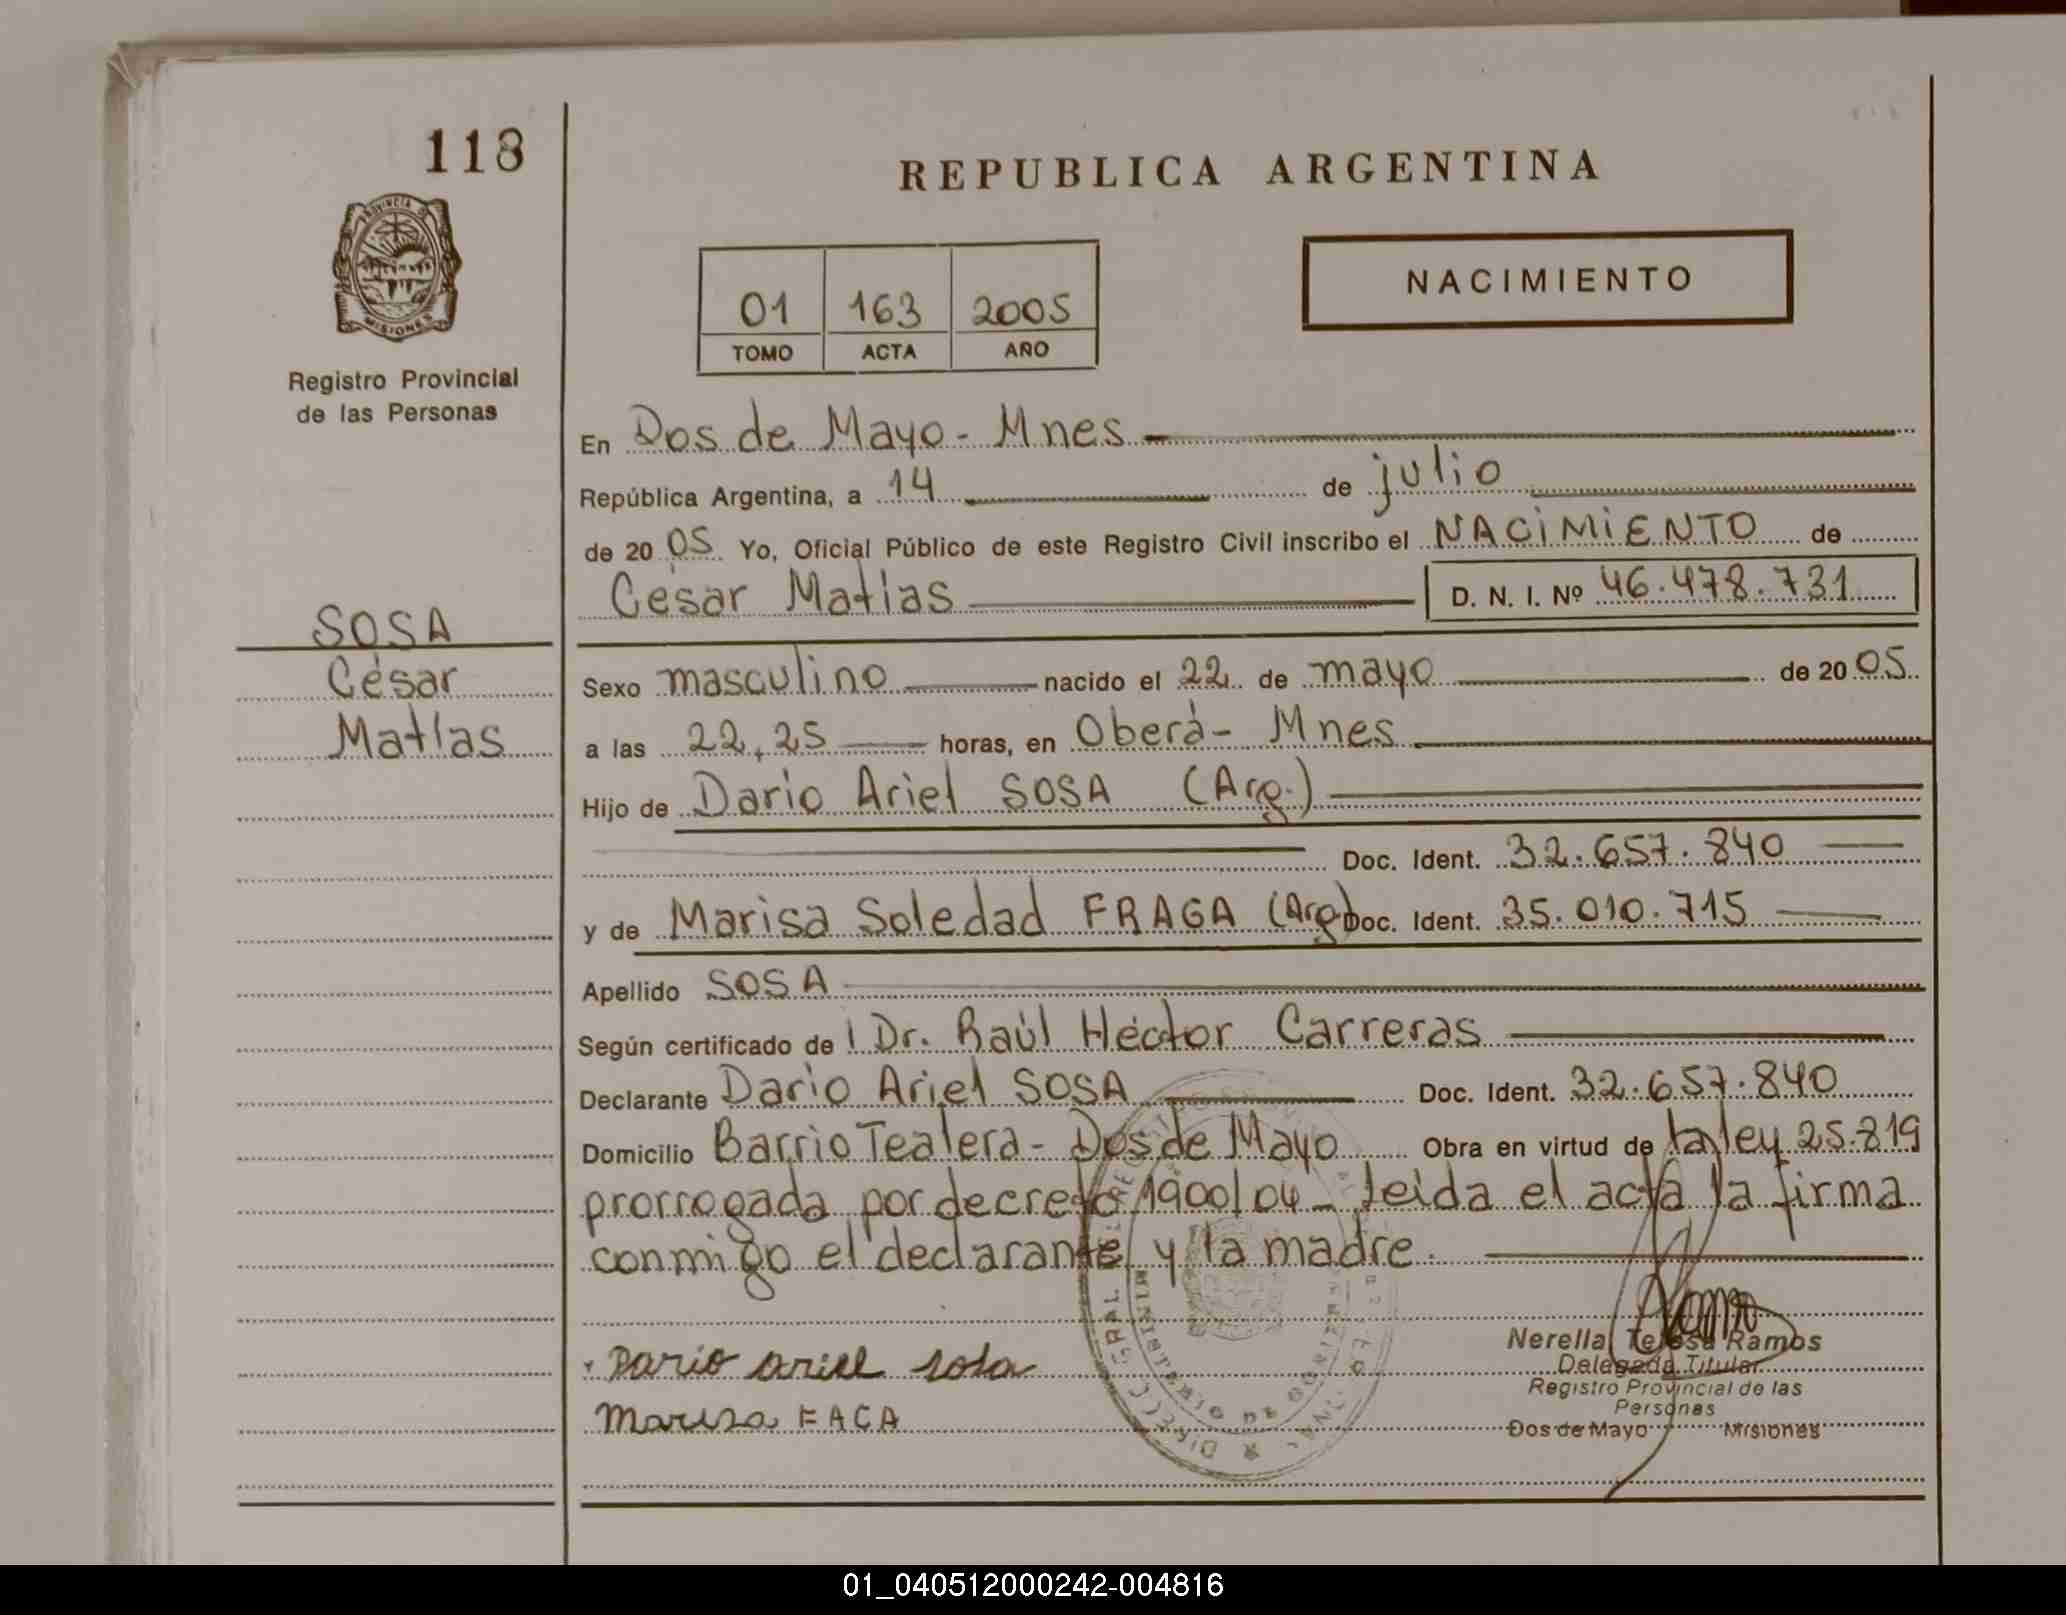 118
REPUBLICA ARGENTINA
PROVINCIA DE
MISIONES
Registro Provincial
de las Personas
NACIMIENTO
01 163 2005
TOMO ACTA AÑO
En Dos de Mayo - Mnes
República Argentina, a 14 de julio
de 20 05 Yo, Oficial Público de este Registro Civil inscribo el NACIMIENTO de
César Matías D. N. I. Nº 46.478.731
SOSA
César
Matías
Sexo masculino nacido el 22 de mayo de 20 05
a las 22,25 horas, en Oberá - Mnes
Hijo de Dario Ariel SOSA (Arg.)
Doc. Ident. 32.657.840
y de Marisa Soledad FRAGA (Arg) Doc. Ident. 35.010.715
Apellido SOSA
Según certificado de l Dr. Raúl Héctor Carreras
Declarante Dario Ariel SOSA Doc. Ident. 32.657.840
Domicilio Barrio Tealera - Dos de Mayo Obra en virtud de la ley 25.819
prorrogada por decreto 1900/04 - Leida el acta la firma
conmigo el declarante y la madre.
Dario ariel sosa
Marisa FACA
Nerella Teresa Ramos
Delegada Titular
Registro Provincial de las
Personas
Dos de Mayo Misiones
01_040512000242-004816